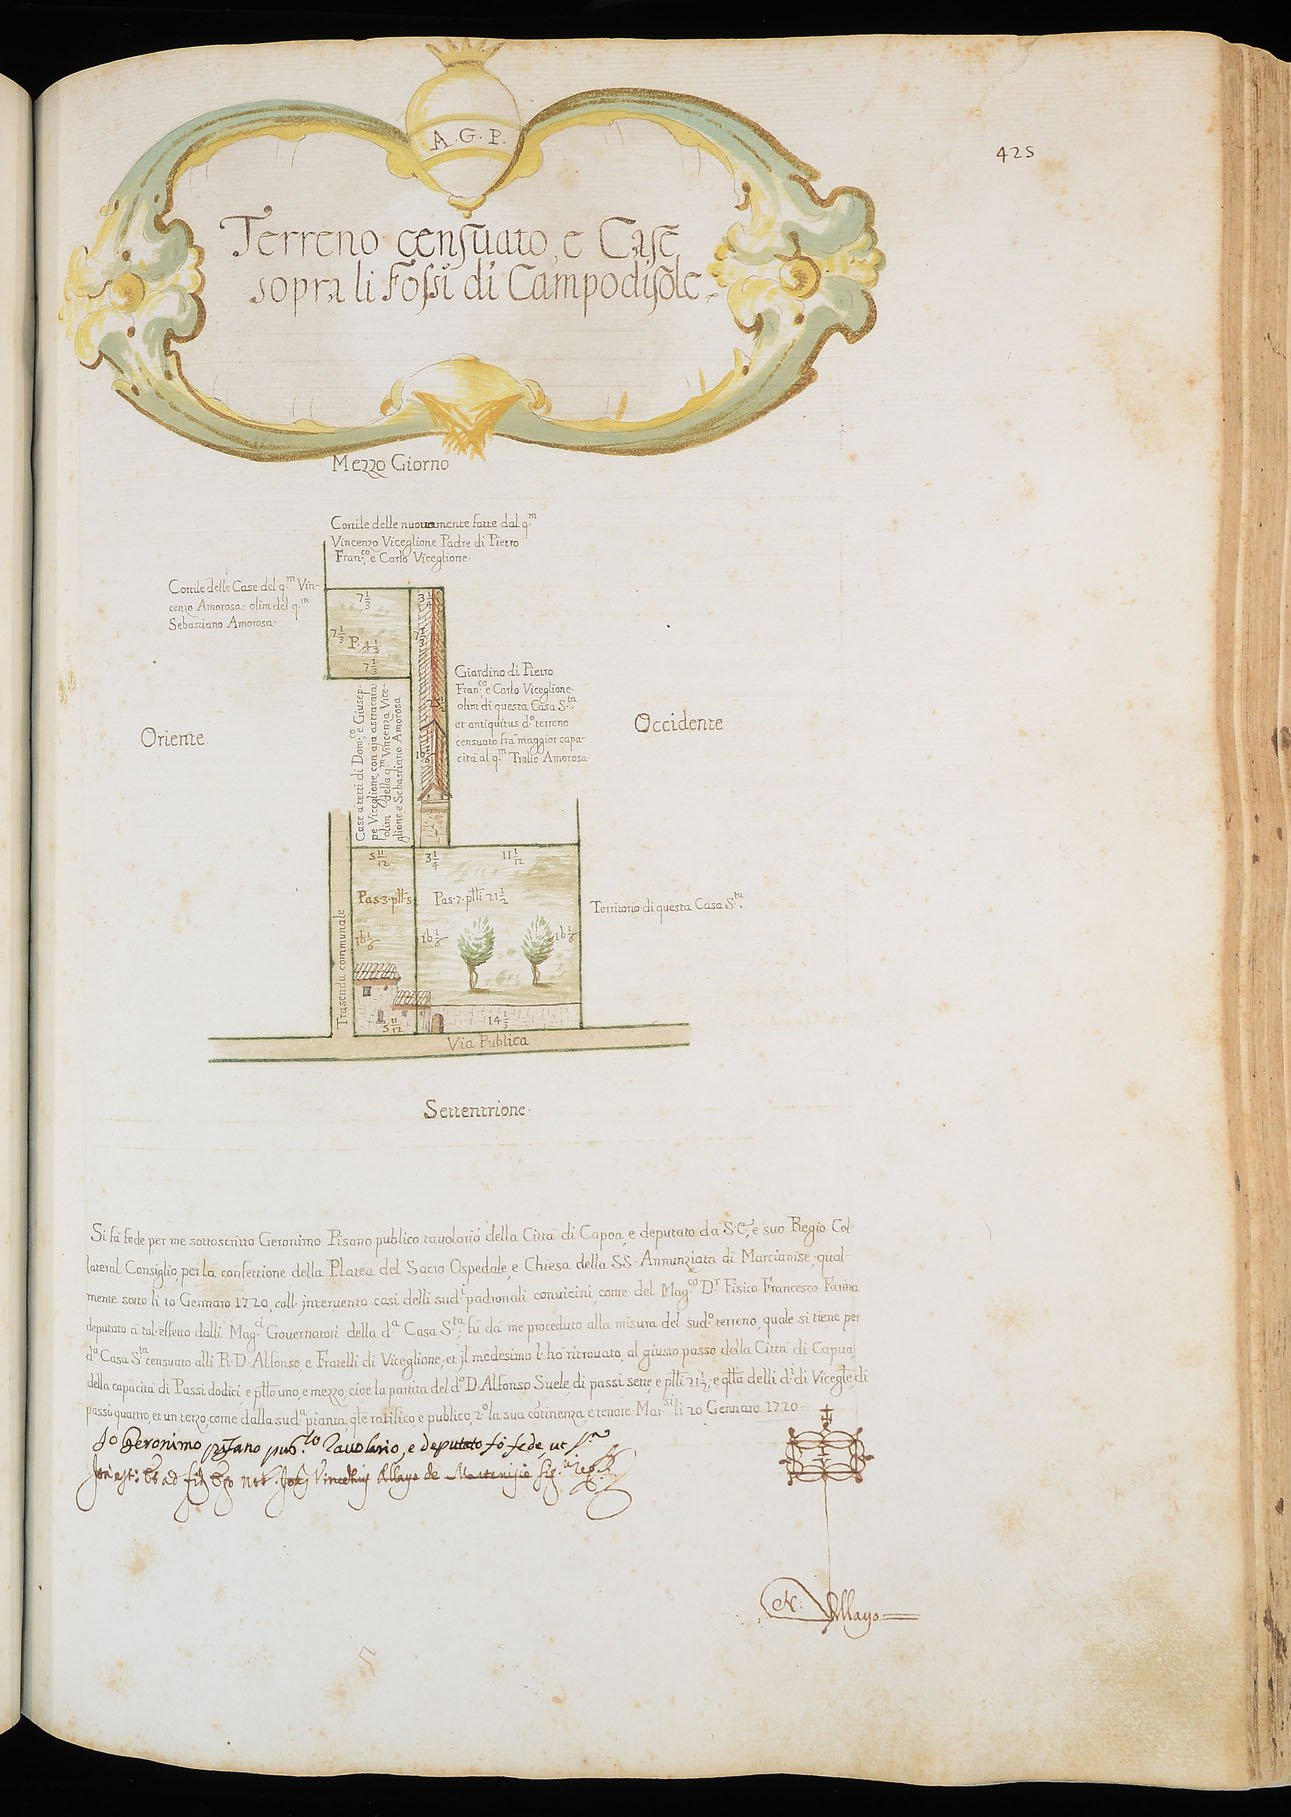 425
A. G. P.
Terreno censuato, e Case
sopra li Fossi di Campodisole.
Mezzo Giorno
Cortile delle nuovamente fatte dal q.m
Vincenzo Viceglione Padre di Pietro
Fran.co, e Carlo Viceglione.
Cortile delle Case del q.m Vin-
cenzo Amorosa; olim del q.m
Sebastiano Amorosa.
7 1/3
3 1/4
7 1/3
P. 4 1/3
7 1/3
7 1/3
Giardino di Pietro
Fran.co, e Carlo Viceglione.
olim di questa Casa S.ta
et antiquitus d.o terreno
censuato frà maggior capa-
cità al q.m Troilo Amorosa.
Oriente
Occidente
Case a tetti di Dom.co, e Giusep-
pe Viceglione, con aja astracata
olim della q.m Vincenza Vice-
glione, e Sebastiano Amorosa
16 1/6
5 11/12
3 1/4
11 1/12
Pas. 3. ptti 5
Pas. 7. ptti 21 1/2
Territorio di questa Casa S.ta.
16 1/6
16 1/6
16 1/6
Trasenda communale
5 11/12
14 1/3
Via Publica
Settentrione.
Si fà fede per me sottoscritto Geronimo Pisano publico tavolario della Città di Capoa, e deputato da S. C., e suo Regio Col-
lateral Consiglio, per la confettione della Platea del Sacro Ospedale, e Chiesa della SS. Annunziata di Marcianise, qual-
mente sotto li 10 Gennaro 1720, coll' jntervento così delli sud.i padronali convicini, come del Mag.co D.r Fisico Francesco Farina
deputato à tal effetto dalli Mag.ci Governatori della d.a Casa S.ta, fù da me proceduto alla misura del sud.o terreno, quale si tiene per
d.a Casa S.ta censuato alli R. D. Alfonso, e Fratelli di Viceglione, et jl medesimo l' hò ritrovato, al giusto passo della Città di Capua
della capacità di Passi dodici, e ptto uno, e mezzo, cioe la partita del d.o D. Alfonso Suele, di passi sette, e ptti 21 1/2, e qtta delli d.i di Viceglie, di
passi quattro, et un terzo, come dalla sud.a pianta, qle ratifico, e publico, 2.o la sua continenza, e tenore. Mar.si li 20 Gennaro 1720
Io Geronimo Pisano pub.co Tavolario, e deputato fò fede, ut s.a
N. Allayo